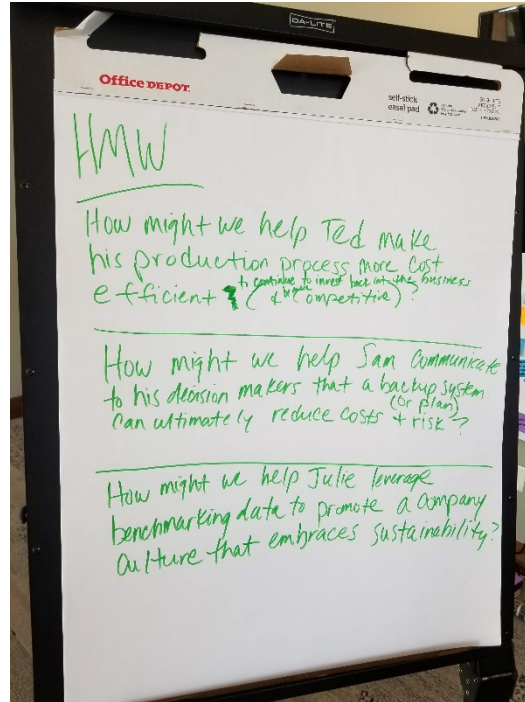 DA-LITE
Office DEPOT.
self-stick
easel pad
HMW
How might we help Ted make
his production process more cost
to continue to invest back into the business
efficient (& competitive)?
How might we help Sam communicate
to his decision makers that a backup system
(or plan)
can ultimately reduce costs + risk?
How might we help Julie leverage
benchmarking data to promote a company
culture that embraces sustainability?